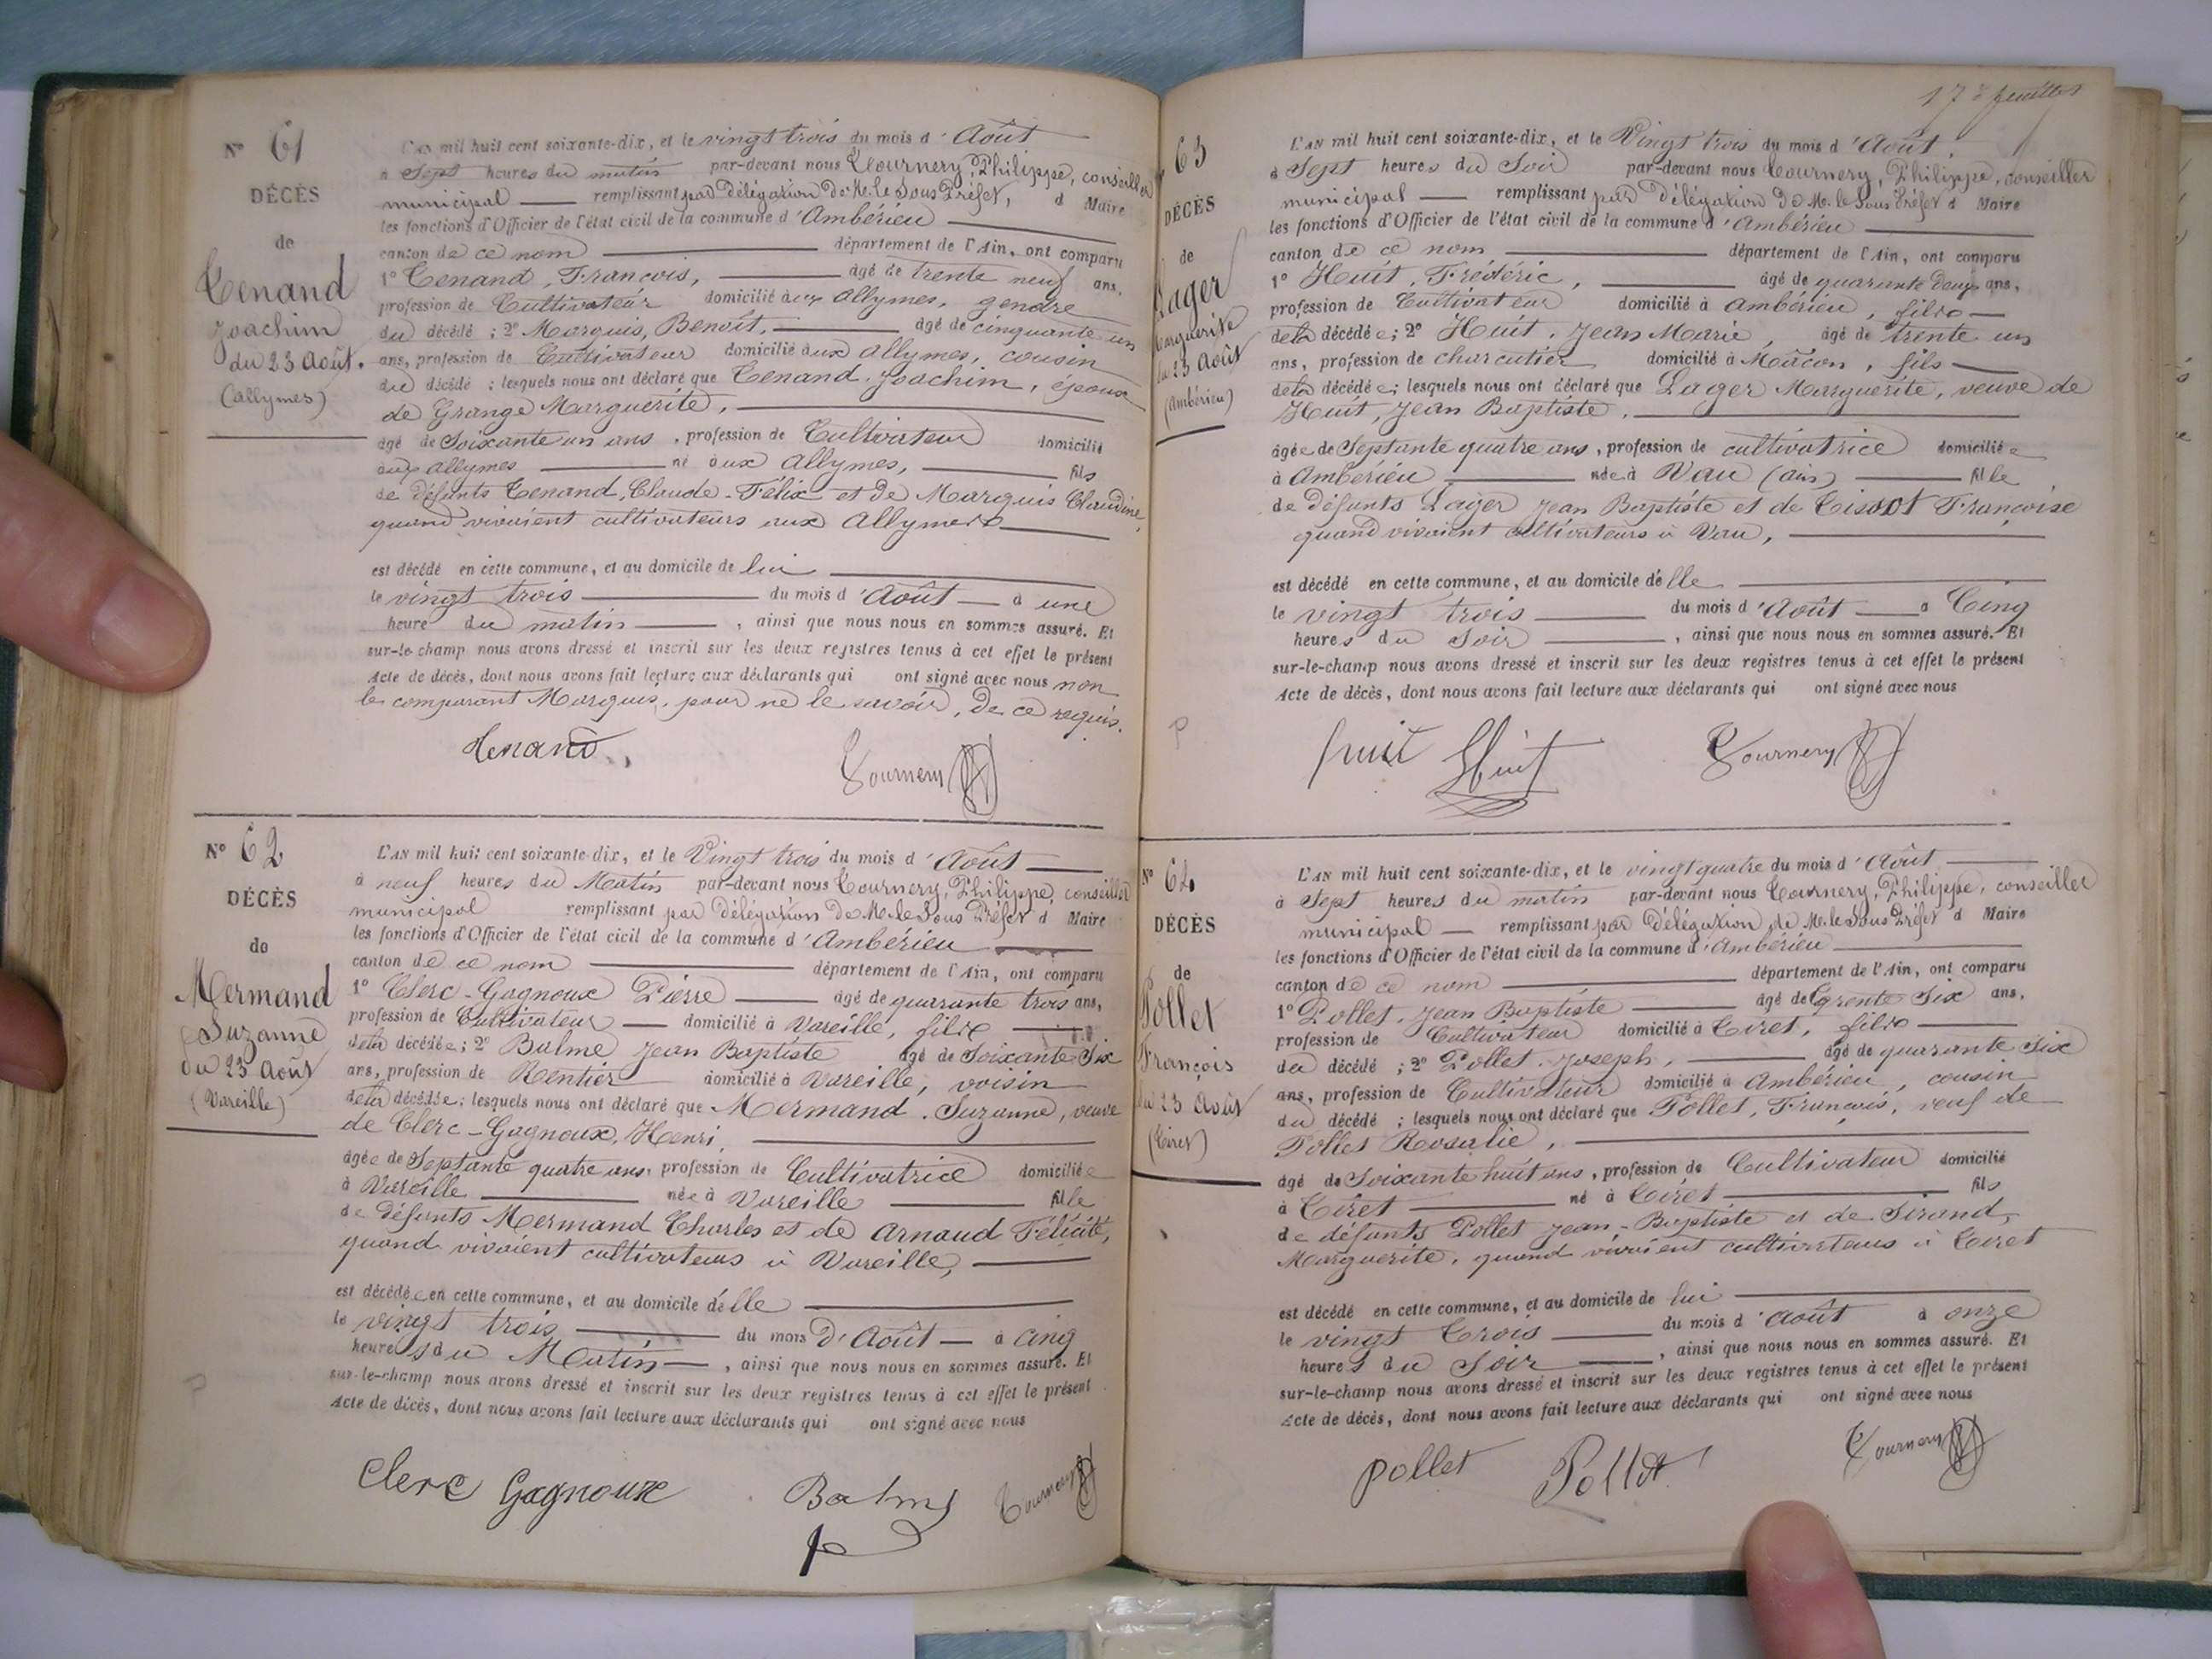 N° 61
DÉCÈS
de
Tenand
Joachim
du 23 Août.
(allymes)
L'AN mil huit cent soixante-dix, et le vingt trois du mois d'Août
à Sept heures du matin par-devant nous Tournery, Philippe, conseiller
municipal remplissant par Délégation de M. le Sous Préfet, d Maire
les fonctions d'Officier de l'état civil de la commune d'Ambérieu
canton de ce nom département de l'Ain, ont comparu
1° Tenand, Francois, âgé de trente neuf ans,
profession de Cultivateur domicilié aux allymes, gendre
du décédé ; 2° Marquis, Benoît, âgé de cinquante un
ans, profession de Cultivateur domicilié aux allymes, cousin
du décédé ; lesquels nous ont déclaré que Tenand, Joachim, époux
de Grange Marguerite,
âgé de Soixante un ans, profession de Cultivateur domicilié
aux allymes né aux Allymes, fils
de défunts Tenand, Claude-Félix et de Marquis Claudine,
quand vivaient cultivateurs aux Allymes
est décédé en cette commune, et au domicile de lui
le vingt trois du mois d'Août à une
heure du matin, ainsi que nous nous en sommes assuré. Et
sur-le-champ nous avons dressé et inscrit sur les deux registres tenus à cet effet le présent
Acte de décès, dont nous avons fait lecture aux déclarants qui ont signé avec nous non
le comparant Marquis, pour ne le savoir, de ce requis.
Tenand Tournery
N° 62
DÉCÈS
de
Mermand
Suzanne
du 23 Août
(Vareille)
L'AN mil huit cent soixante-dix, et le Vingt trois du mois d'Août
à neuf heures du Matin par-devant nous Tournery, Philippe, conseiller
municipal remplissant par Délégation de M. le Sous Préfet d Maire
les fonctions d'Officier de l'état civil de la commune d'Ambérieu
canton de ce nom département de l'Ain, ont comparu
1° Clerc-Gagnoux Pierre âgé de quarante trois ans,
profession de Cultivateur domicilié à Vareille, fils
de la décédée; 2° Balme Jean Baptiste âgé de Soixante Six
ans, profession de Rentier domicilié à Vareille, voisin
de la décédée; lesquels nous ont déclaré que Mermand, Suzanne, veuve
de Clerc-Gagnoux, Henri,
âgée de Septante quatre ans, profession de Cultivatrice domiciliée
à Vareille née à Vareille fille
de défunts Mermand Charles et de Arnaud Félicité,
quand vivaient cultivateurs à Vareille,
est décédée en cette commune, et au domicile d'elle
le vingt trois du mois D'Août à cinq
heures du Matin, ainsi que nous nous en sommes assuré. Et
sur-le-champ nous avons dressé et inscrit sur les deux registres tenus à cet effet le présent
Acte de décès, dont nous avons fait lecture aux déclarants qui ont signé avec nous
Clerc Gagnoux Balme Tournery
17e feuillet
63
DÉCÈS
de
Lager
Marguerite
du 23 Août
(Ambérieu)
L'AN mil huit cent soixante-dix, et le Vingt trois du mois d'Août,
à Sept heures du Soir par-devant nous Tournery, Philippe, conseiller
municipal remplissant par Délégation de M. le Sous Préfet d Maire
les fonctions d'Officier de l'état civil de la commune d'Ambérieu
canton de ce nom département de l'Ain, ont comparu
1° Huit, Frédéric, âgé de quarante deux ans,
profession de Cultivateur domicilié à Ambérieu, fils
de la décédée; 2° Huit, Jean Marie, âgé de trente un
ans, profession de charcutier domicilié à Mâcon, fils
de la décédée; lesquels nous ont déclaré que Lager Marguerite, veuve de
Huit, Jean Baptiste,
âgée de Septante quatre ans, profession de cultivatrice domiciliée
à Ambérieu née à Vau (ain) fille
de défunts Lager Jean Baptiste et de Tissot Françoise
quand vivaient cultivateurs à Vau,
est décédé en cette commune, et au domicile d'elle
le vingt trois du mois d'Août à Cinq
heures du Soir, ainsi que nous nous en sommes assuré. Et
sur-le-champ nous avons dressé et inscrit sur les deux registres tenus à cet effet le présent
Acte de décès, dont nous avons fait lecture aux déclarants qui ont signé avec nous
huit Huit Tournery
N° 64
DÉCÈS
de
Pollet
François
du 23 Août
(Tiret)
L'AN mil huit cent soixante-dix, et le vingt quatre du mois d'Août
à Sept heures du matin par-devant nous Tournery, Philippe, conseiller
municipal remplissant par Délégation de M. le Sous Préfet d Maire
les fonctions d'Officier de l'état civil de la commune d'Ambérieu
canton de ce nom département de l'Ain, ont comparu
1° Pollet, Jean Baptiste âgé de trente Six ans,
profession de Cultivateur domicilié à Tiret, fils
du décédé ; 2° Pollet, Joseph, âgé de quarante Six
ans, profession de Cultivateur domicilié à Ambérieu, cousin
du décédé ; lesquels nous ont déclaré que Pollet, François, veuf de
Pollet Rosalie,
âgé de Soixante huit ans, profession de Cultivateur domicilié
à Tiret né à Tiret fils
de défunts Pollet Jean-Baptiste et de Sirand,
Marguerite, quand vivaient cultivateurs à Tiret
est décédé en cette commune, et au domicile de lui
le vingt Trois du mois d'août à onze
heures du Soir, ainsi que nous nous en sommes assuré. Et
sur-le-champ nous avons dressé et inscrit sur les deux registres tenus à cet effet le présent
Acte de décès, dont nous avons fait lecture aux déclarants qui ont signé avec nous
pollet Pollet Tournery